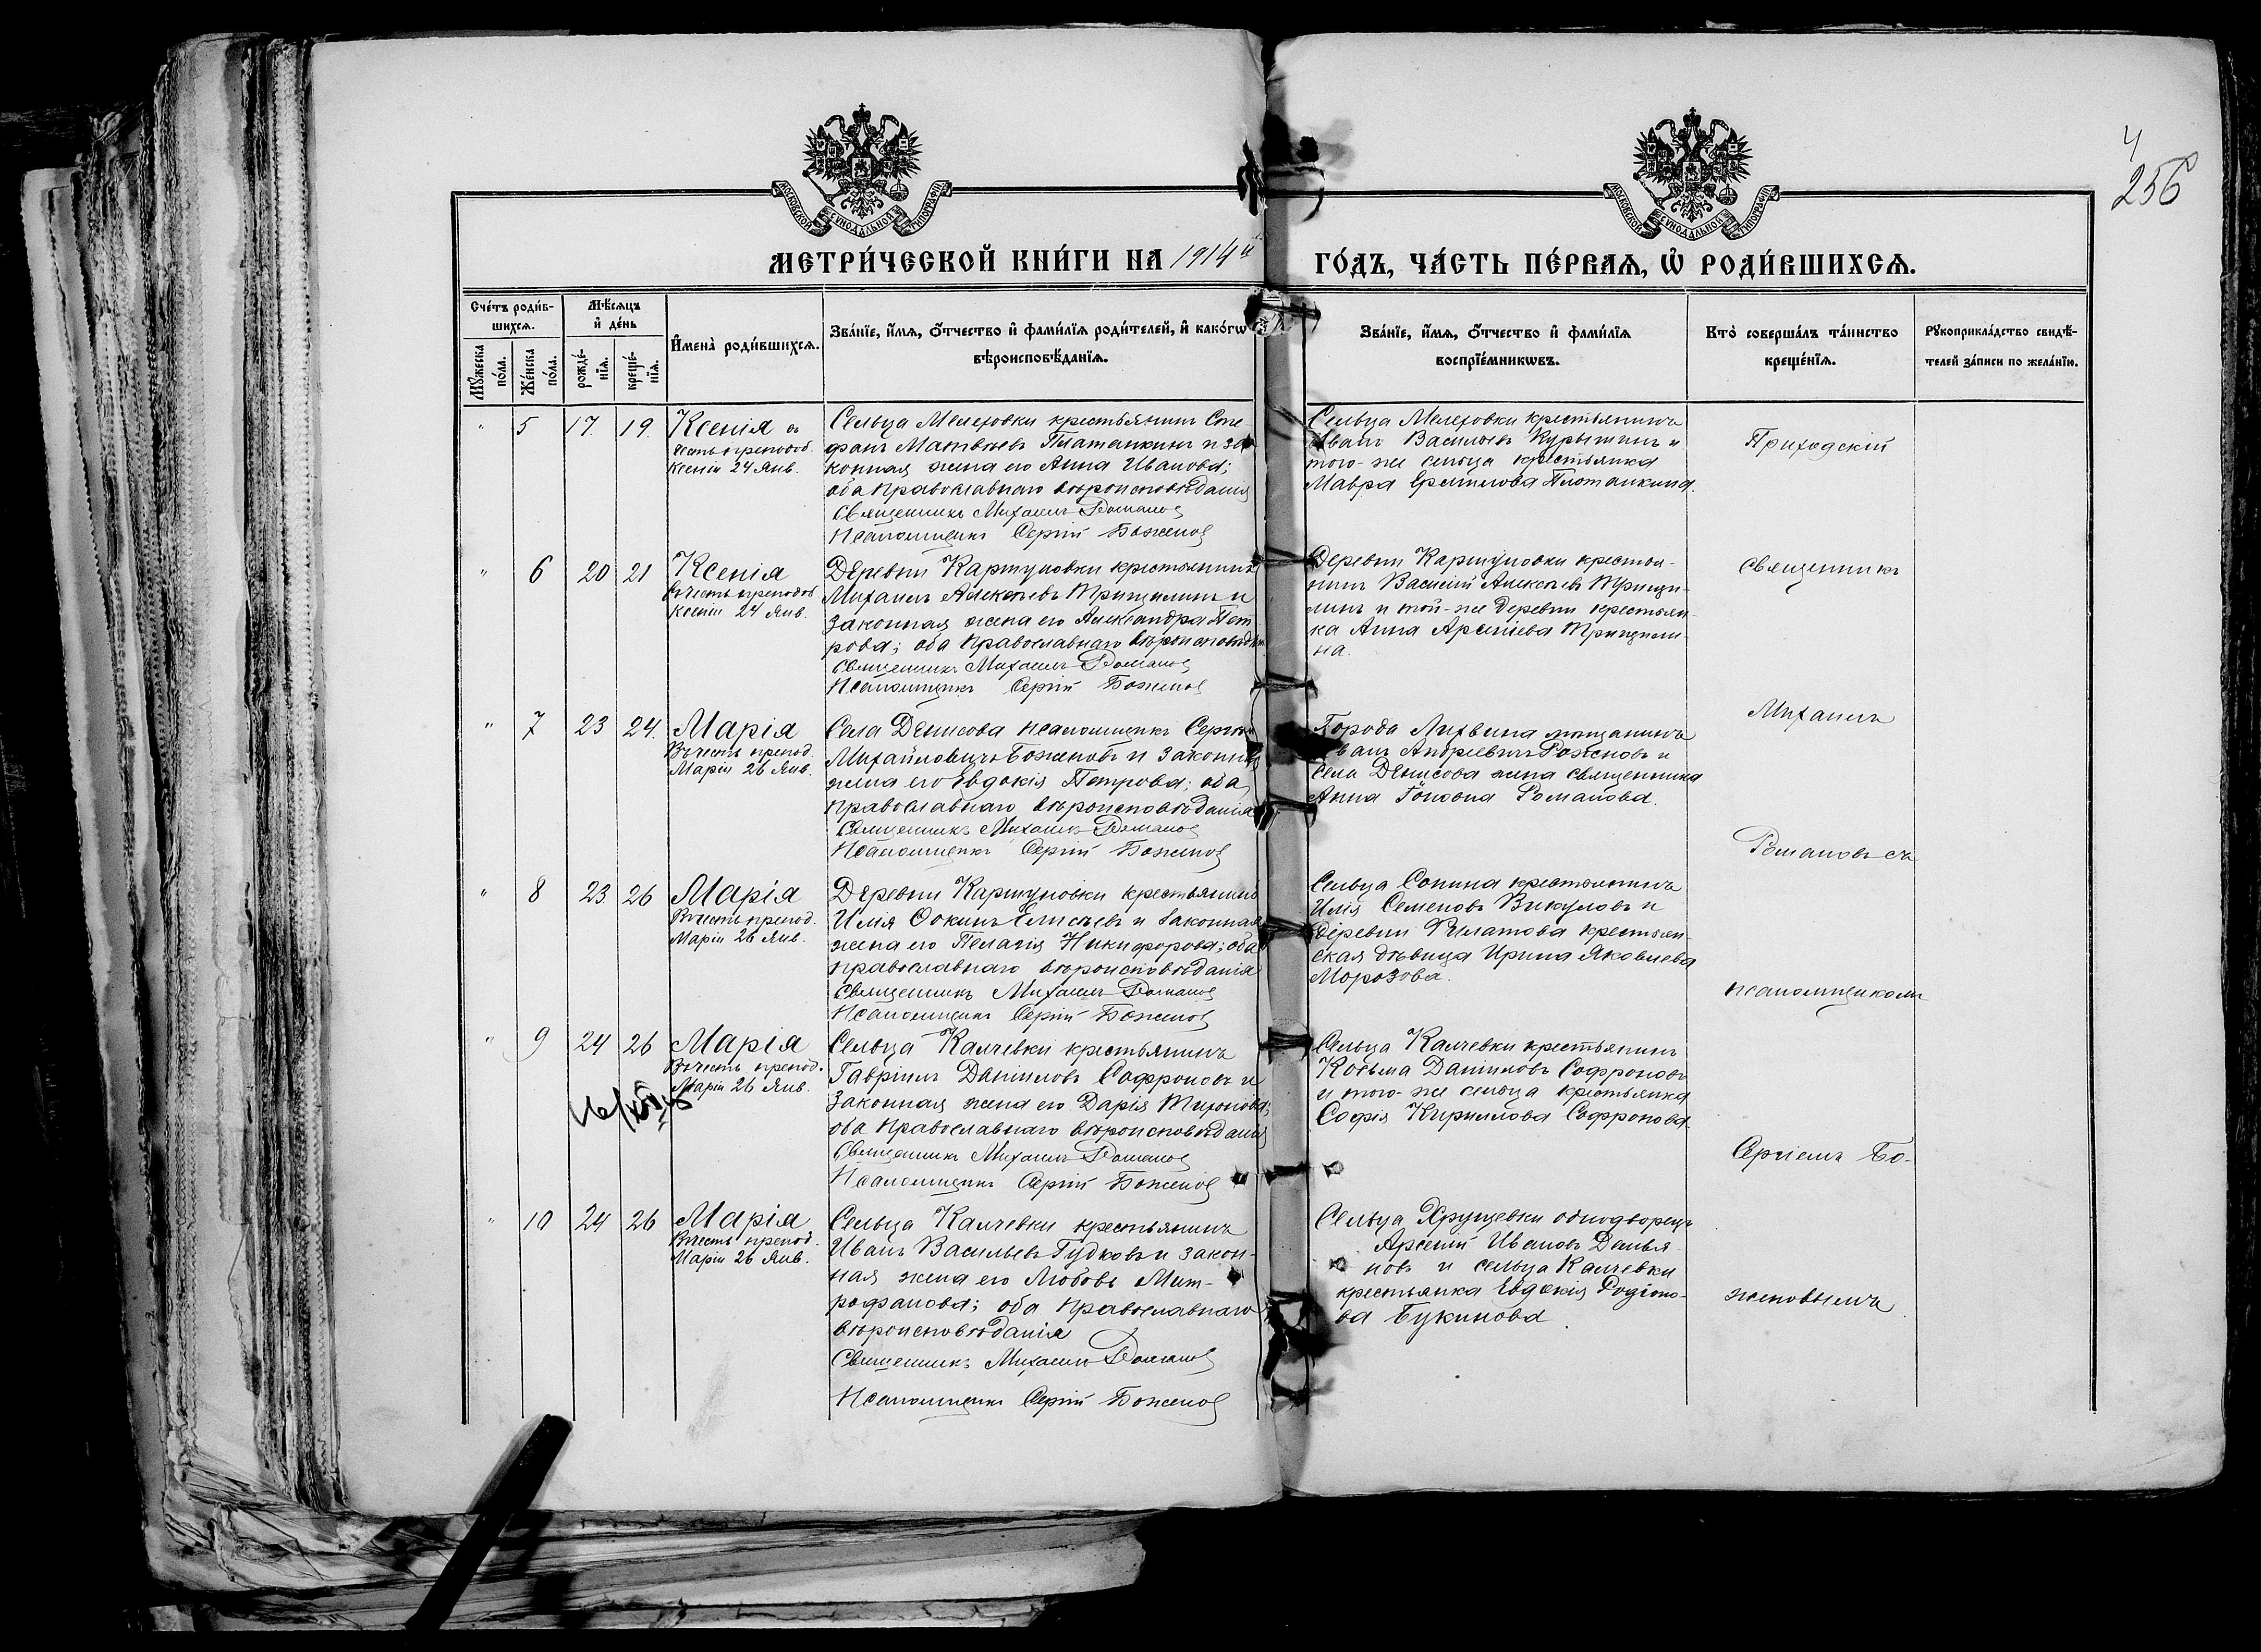 4
256
МОСКОВСКОЙ СѴНОДАЛЬНОЙ ТИПОГРАФІИ
МОСКОВСКОЙ СѴНОДАЛЬНОЙ ТИПОГРАФІИ
МЕТРИ́ЧЕСКОЙ КНИ́ГИ НА 1914й
ГО́ДЪ, ЧА́СТЬ ПЕ́РВАЯ, Ѽ РОДИ́ВШИХСЯ.
Сче́тъ роди́в-
шихся.
Мꙋжеска по́ла.
Же́нска по́ла.
Мѣ́сяцъ
и҆ де́нь
рожде́-
нїя.
креще́-
нїя.
И҆мена̀ роди́вшихся.
Зва́нїе, и҆́мя, ѻ҆́тчество и҆ фами́лїя роди́телей, и҆ како́гѡ
вѣроисповѣ́данїя.
Зва́нїе, и҆́мя, ѻ҆́тчество и҆ фами́лїя
воспрїе́мникѡвъ.
Кто̀ соверша́лъ та́инство
креще́нїя.
Рꙋкоприкла́дство свидѣ́-
телей за́писи по жела́нїю.
" 5 17. 19. Ксенія въ
честь преподоб.
Ксеніи 24 Янв.
Сельца Мелеховки крестьянинъ Сте
фанъ Матвѣевъ Платанкинъ и за
конная жена его Анна Иванова;
оба православнаго вѣроисповѣданія
Священникъ Михаилъ Романов
Псаломщикъ Сергій Боженов
Сельца Мелеховки крестьянинъ
Иванъ Васильевъ Курытинъ и
того-же сельца крестьянка
Мавра Ермилова Платанкина.
Приходскій
" 6 20 21 Ксенія
Въ честь преподоб
Ксеніи 24 Янв.
Деревни Картуновки крестьянинъ
Михаилъ Алексѣевъ Трищилинъ и
законная жена его Александра Пет
рова; оба православнаго вѣроисповѣдан
Священникъ Михаилъ Романов
Псаломщикъ Сергій Боженов
Деревни Картуновки крестья-
нинъ Василій Алексѣевъ Трищи-
линъ и той-же деревни крестьян-
ка Анна Арсеніева Трищили-
на.
священникъ
" 7 23 24. Марія
Въ честь препод.
Маріи 26 Янв.
Села Денисова псаломщикъ Сергій
Михайловичъ Боженовъ и законная
жена его Евдокія Петрова; оба
православнаго вѣроисповѣданія
Священникъ Михаилъ Романов
Псаломщикъ Сергій Боженов
Города Лихвина мѣщанинъ
Иванъ Андреевичъ Роженовъ и
села Денисова жена священника
Анна Іоновна Романова.
Михаилъ
Романовъ съ
" 8 23 26 Марія
Въ честь препод.
Маріи 26 Янв.
Деревни Картуновки крестьянинъ
Илія Ѳокинъ Елисѣевъ и законная
жена его Пелагія Никифорова; оба
православнаго вѣроисповѣданія
Священникъ Михаилъ Романов
Псаломщикъ Сергій Боженов
Сельца Сонина крестьянинъ
Илія Семеновъ Викуловъ и
деревни Филатова крестьян-
ская дѣвица Ирина Яковлева
Морозова.
псаломщикомъ
" 9 24 26 Марія
Въ честь препод.
Маріи 26 Янв.
Сельца Калчевки крестьянинъ
Гавріилъ Даніиловъ Софроновъ и
законная жена его Дарія Тихонова;
оба православнаго вѣроисповѣданія
Священникъ Михаилъ Романов
Псаломщикъ Сергій Боженов
Сельца Калчевки крестьянинъ
Косьма Даниловъ Софроновъ
и того-же сельца крестьянка
Софія Кириллова Софронова.
Сергіемъ Бо-
" 10 24 26 Марія
Въ честь препод.
Маріи 26 Янв.
Сельца Калчевки крестьянинъ
Иванъ Васильевъ Гудковъ и закон-
ная жена его Любовь Мит-
рофанова; оба православнаго
вѣроисповѣданія
Священникъ Михаилъ Романов
Псаломщикъ Сергій Боженов
Сельца Хрущевки однодворецъ
Арсеній Ивановъ Демья-
новъ и сельца Калчевки
крестьянка Евдокія Родіоно-
ва Букинова.
женовымъ